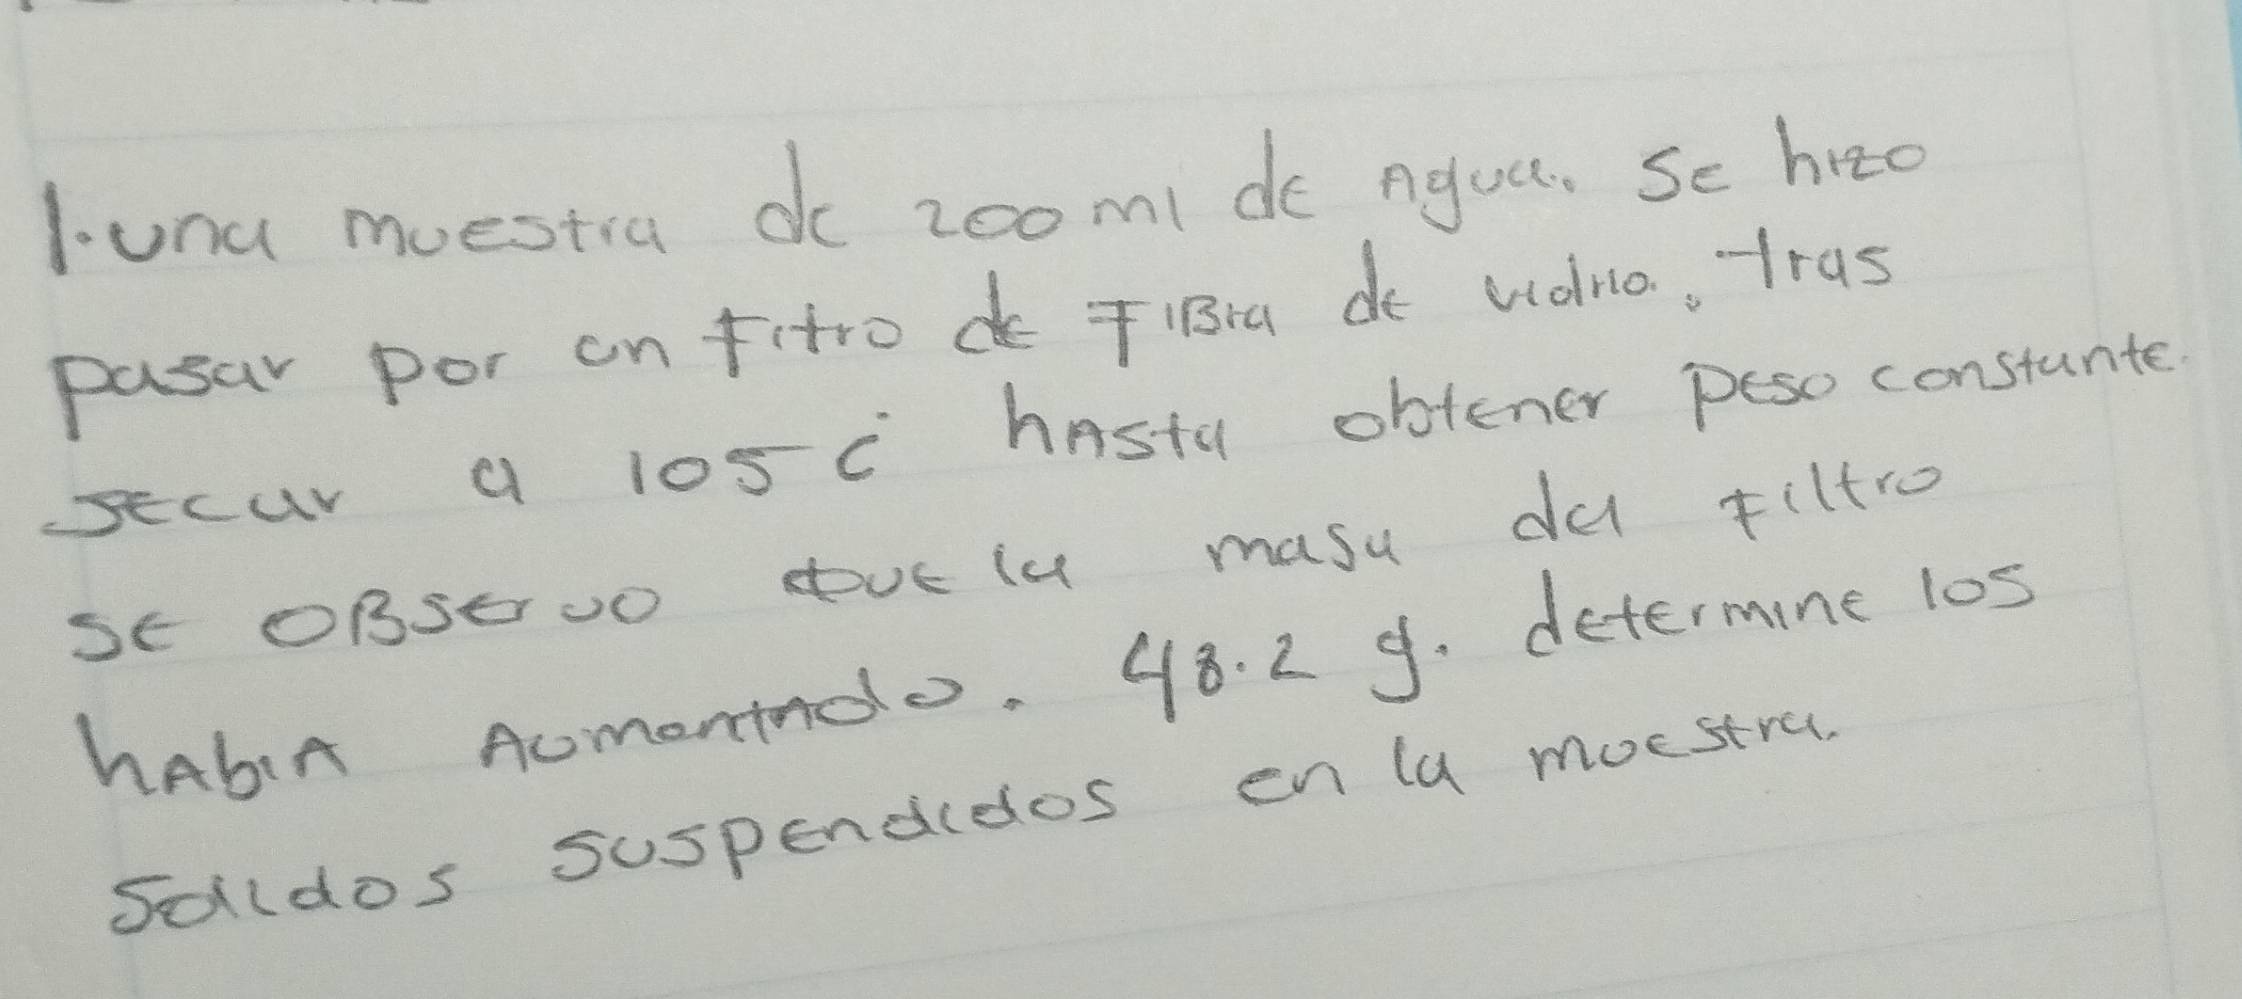 1. una muestra de 200 ml de Agua. se hizo
pasar por un fitro de FIBra de vidrio. tras
secar a 105 c hAsta obtener peso constante.
se OBservo que la masa del filtro
hAbiA Aumentado. 48.2 g. determine los
solidos suspendidos en la muestra.